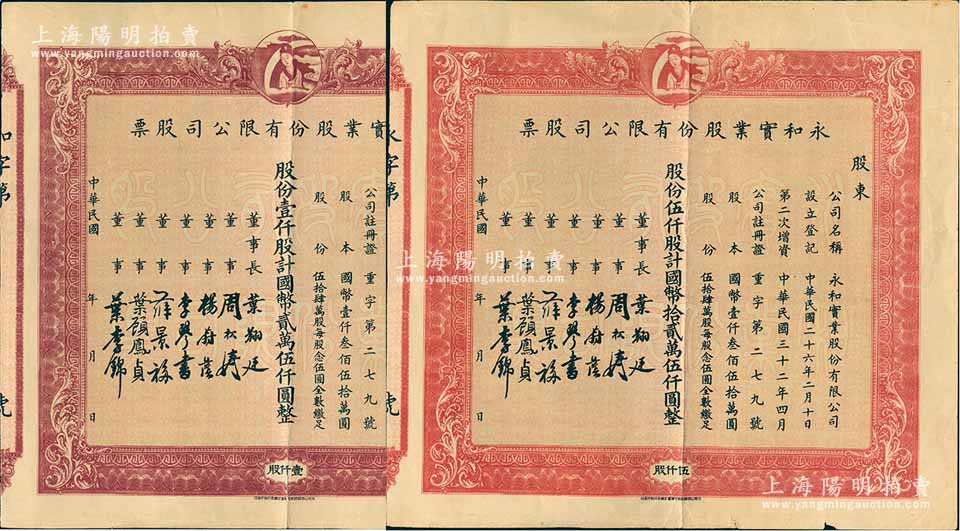 上海陽明拍賣
www.yangmingauction.com
實業股份有限公司股票
公司註冊證 重字第二七九號
股本 國幣壹仟叁佰伍拾萬圓
股份 伍拾肆萬股每股念伍圓全數繳足
股份壹仟股計國幣貳萬伍仟圓整
董事長 葉翔廷
董事 周松濤
董事 楊蔚蓀
董事 李學書
董事 薛景福
董事 葉顧鳳貞
董事 葉李錦
中華民國 年 月 日
壹仟股
和字第
永字第
號
上海陽明拍賣
www.yangmingauction.com
上海陽明拍賣
www.yangmingauction.com
永和實業股份有限公司股票
股東
公司名稱 永和實業股份有限公司
設立登記 中華民國二十六年二月十日
第二次增資 中華民國三十二年四月
公司註冊證 重字第二七九號
股本 國幣壹仟叁佰伍拾萬圓
股份 伍拾肆萬股每股念伍圓全數繳足
股份伍仟股計國幣拾貳萬伍仟圓整
董事長 葉翔廷
董事 周松濤
董事 楊蔚蓀
董事 李學書
董事 薛景福
董事 葉顧鳳貞
董事 葉李錦
中華民國 年 月 日
伍仟股
上海陽明拍賣
www.yangmingauction.com